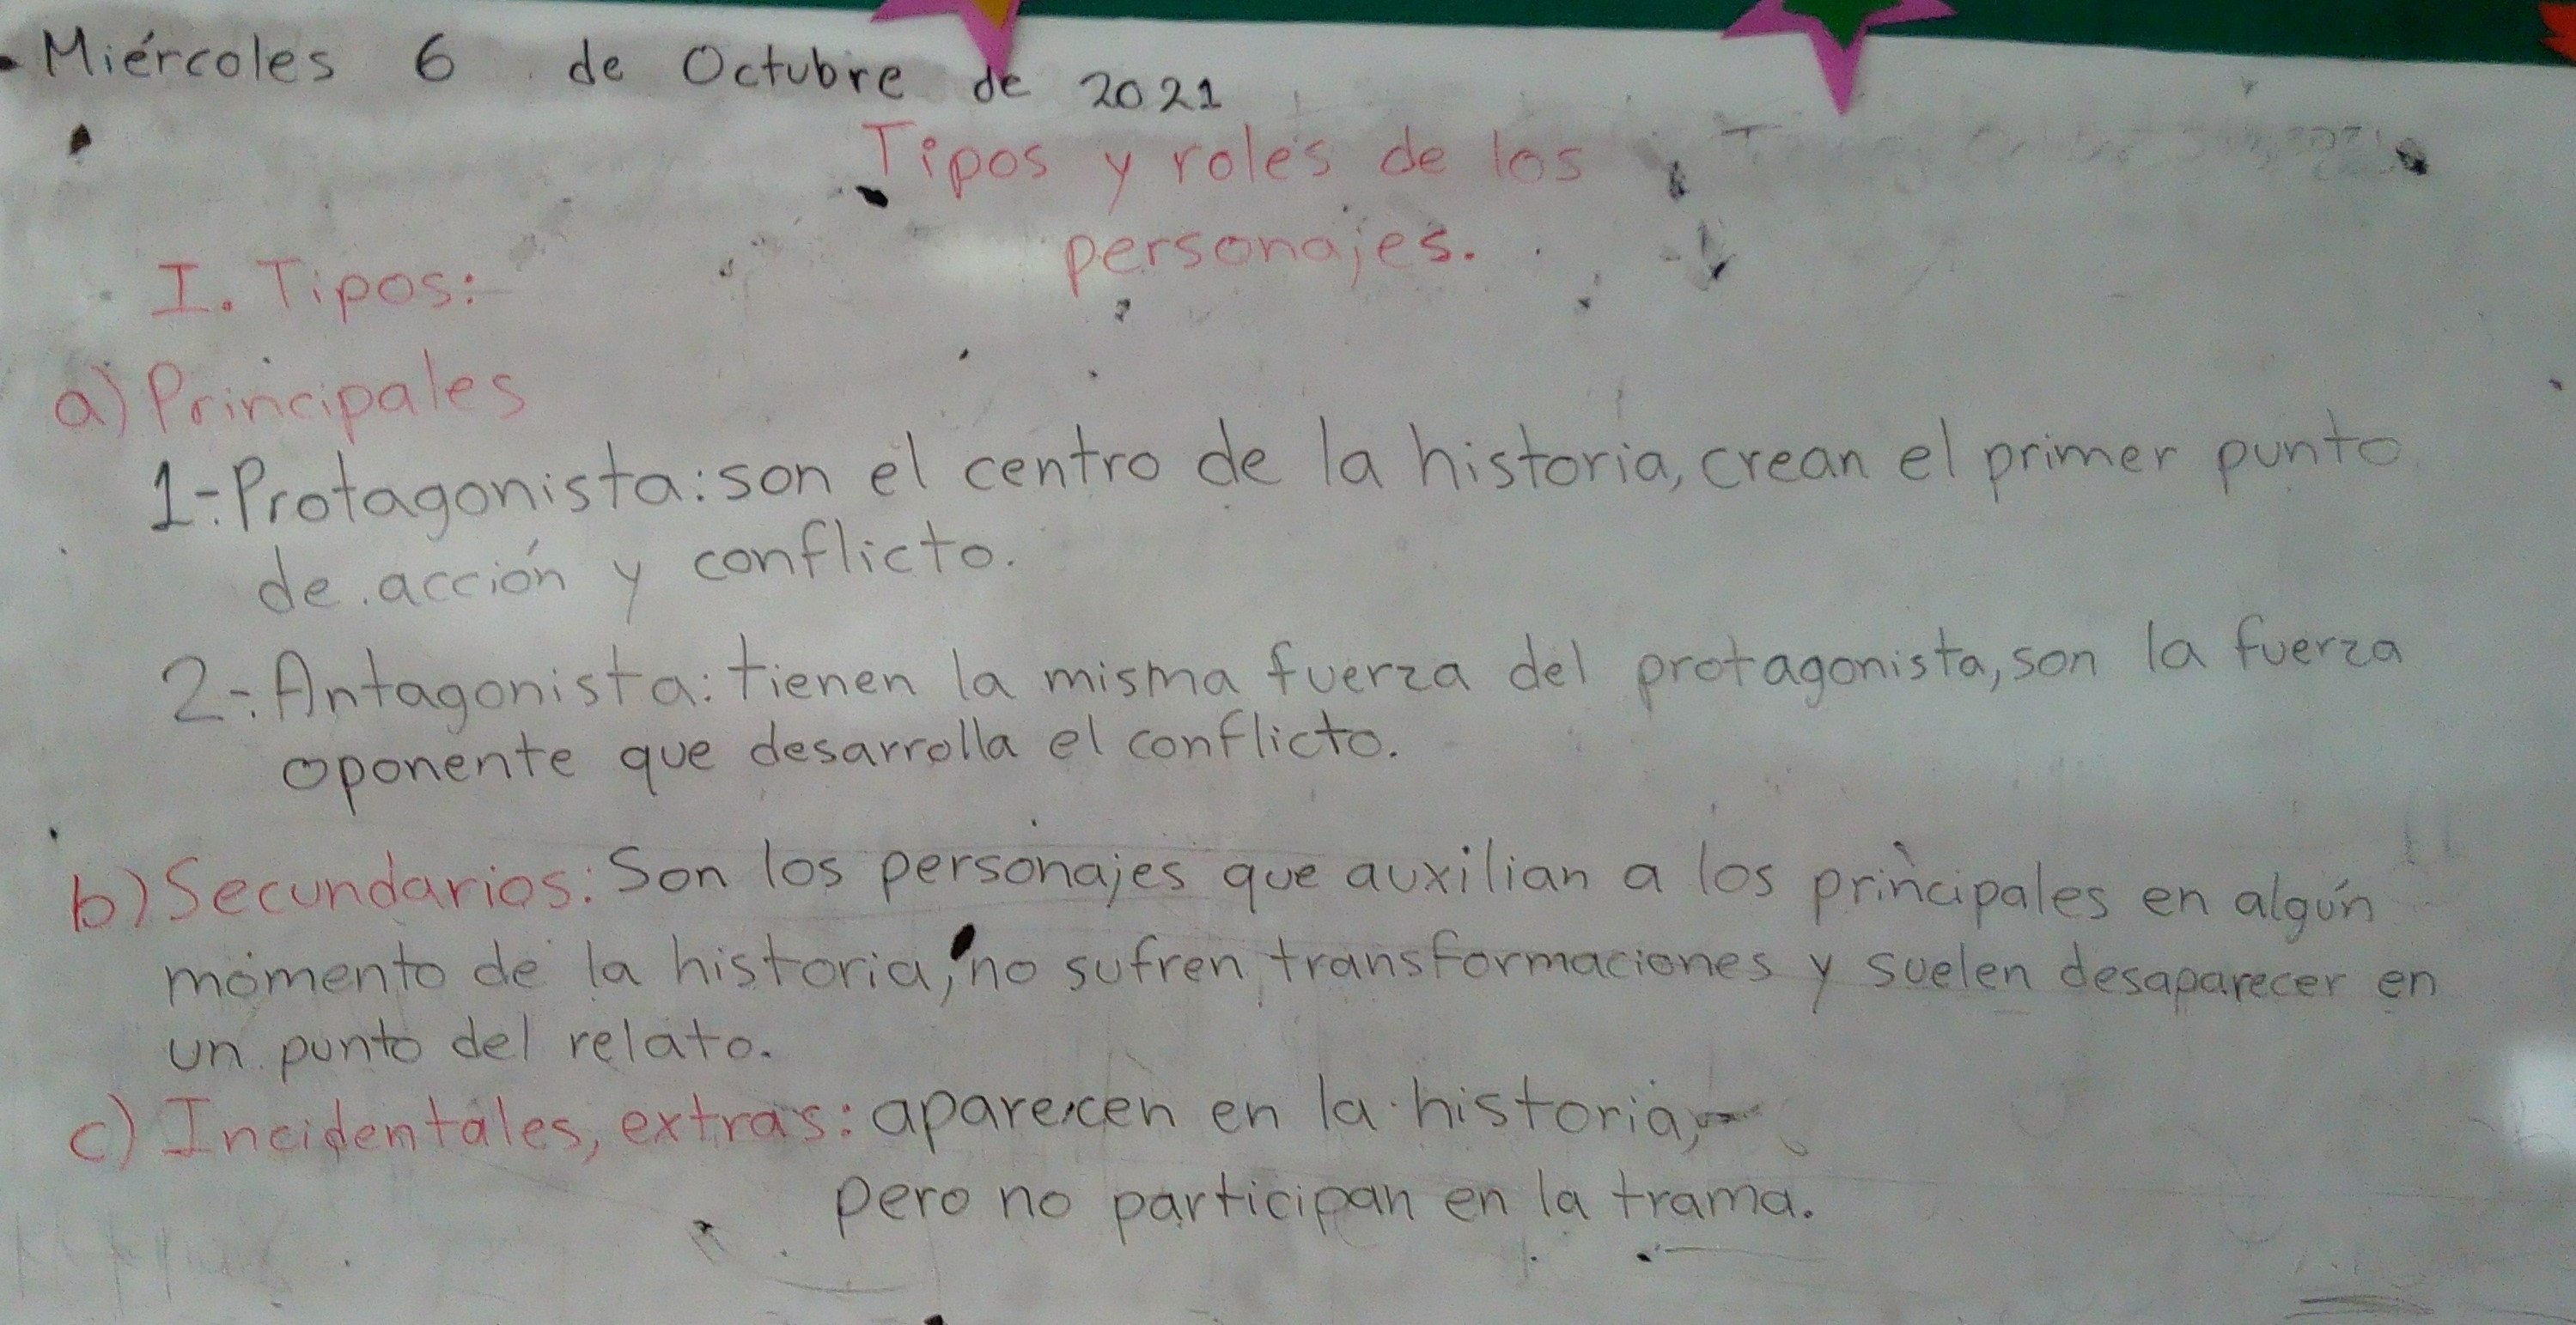 Miércoles 6 de Octubre de 2021
Tipos y roles de los
personajes.
I. Tipos:
a) Principales
1-. Protagonista: son el centro de la historia, crean el primer punto
de acción y conflicto.
2-. Antagonista: tienen la misma fuerza del protagonista, son la fuerza
oponente que desarrolla el conflicto.
b) Secundarios: Son los personajes que auxilian a los principales en algún
momento de la historia, no sufren transformaciones y suelen desaparecer en
un punto del relato.
c) Incidentales, extras: aparecen en la historia,
pero no participan en la trama.